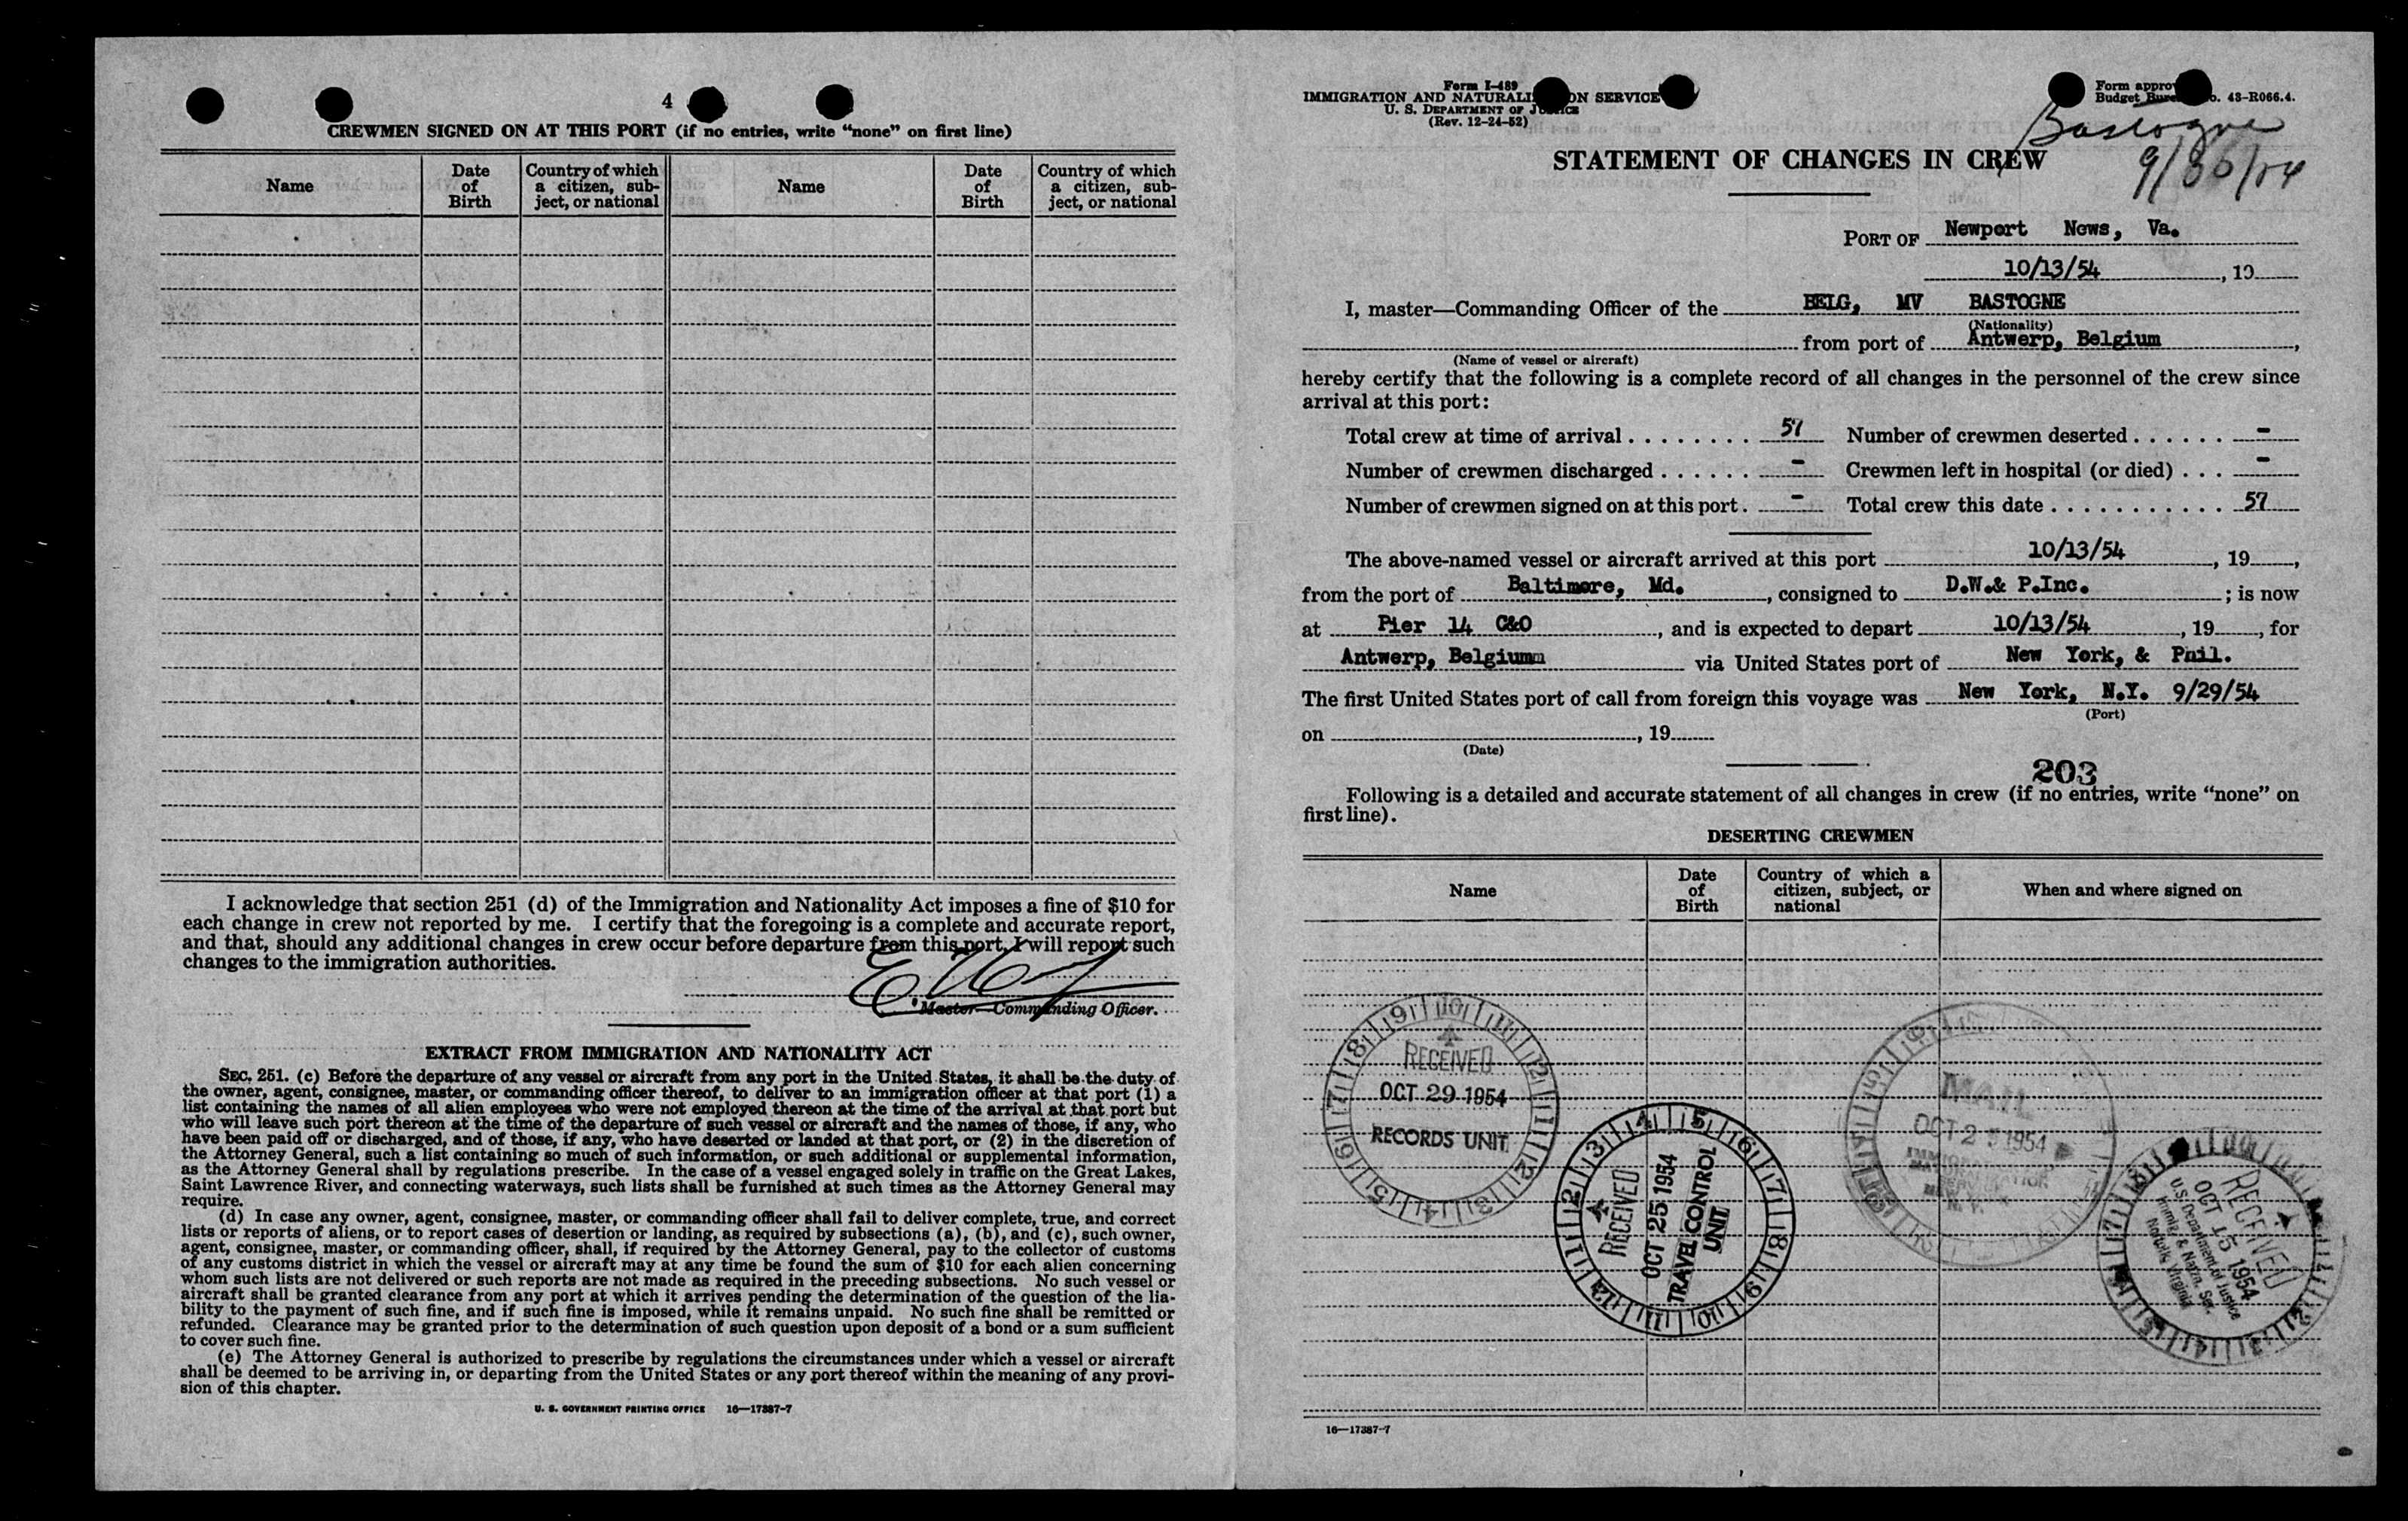 4
CREWMEN SIGNED ON AT THIS PORT (if no entries, write “none” on first line)
Name
Date of Birth
Country of which a citizen, subject, or national
Name
Date of Birth
Country of which a citizen, subject, or national
I acknowledge that section 251 (d) of the Immigration and Nationality Act imposes a fine of $10 for
each change in crew not reported by me. I certify that the foregoing is a complete and accurate report,
and that, should any additional changes in crew occur before departure from this port, I will report such
changes to the immigration authorities.
Master—Commanding Officer.
EXTRACT FROM IMMIGRATION AND NATIONALITY ACT
SEC. 251. (c) Before the departure of any vessel or aircraft from any port in the United States, it shall be the duty of
the owner, agent, consignee, master, or commanding officer thereof, to deliver to an immigration officer at that port (1) a
list containing the names of all alien employees who were not employed thereon at the time of the arrival at that port but
who will leave such port thereon at the time of the departure of such vessel or aircraft and the names of those, if any, who
have been paid off or discharged, and of those, if any, who have deserted or landed at that port, or (2) in the discretion of
the Attorney General, such a list containing so much of such information, or such additional or supplemental information,
as the Attorney General shall by regulations prescribe. In the case of a vessel engaged solely in traffic on the Great Lakes,
Saint Lawrence River, and connecting waterways, such lists shall be furnished at such times as the Attorney General may
require.
(d) In case any owner, agent, consignee, master, or commanding officer shall fail to deliver complete, true, and correct
lists or reports of aliens, or to report cases of desertion or landing, as required by subsections (a), (b), and (c), such owner,
agent, consignee, master, or commanding officer, shall, if required by the Attorney General, pay to the collector of customs
of any customs district in which the vessel or aircraft may at any time be found the sum of $10 for each alien concerning
whom such lists are not delivered or such reports are not made as required in the preceding subsections. No such vessel or
aircraft shall be granted clearance from any port at which it arrives pending the determination of the question of the lia-
bility to the payment of such fine, and if such fine is imposed, while it remains unpaid. No such fine shall be remitted or
refunded. Clearance may be granted prior to the determination of such question upon deposit of a bond or a sum sufficient
to cover such fine.
(e) The Attorney General is authorized to prescribe by regulations the circumstances under which a vessel or aircraft
shall be deemed to be arriving in, or departing from the United States or any port thereof within the meaning of any provi-
sion of this chapter.
U. S. GOVERNMENT PRINTING OFFICE 16—17387-7
Form I-489
IMMIGRATION AND NATURALI ON SERVICE
U. S. DEPARTMENT OF JUSTICE
(Rev. 12-24-52)
Form appro
Budget Bureau No. 43-R066.4.
Bastogne
9/30/54
STATEMENT OF CHANGES IN CREW
PORT OF Newport News, Va.
10/13/54, 19
I, master—Commanding Officer of the BELG, MV BASTOGNE
(Nationality)
from port of Antwerp, Belgium,
(Name of vessel or aircraft)
hereby certify that the following is a complete record of all changes in the personnel of the crew since
arrival at this port:
Total crew at time of arrival ........ 57 Number of crewmen deserted ...... -
Number of crewmen discharged ...... - Crewmen left in hospital (or died) ... -
Number of crewmen signed on at this port. - Total crew this date ........... 57
The above-named vessel or aircraft arrived at this port 10/13/54, 19,
from the port of Baltimore, Md., consigned to D.W.& P.Inc.; is now
at Pier 14 C&O, and is expected to depart 10/13/54, 19, for
Antwerp, Belgiumm via United States port of New York, & Phil.
The first United States port of call from foreign this voyage was New York, N.Y. 9/29/54
(Port)
on , 19
(Date)
203
Following is a detailed and accurate statement of all changes in crew (if no entries, write “none” on
first line).
DESERTING CREWMEN
Name
Date of Birth
Country of which a citizen, subject, or national
When and where signed on
RECEIVED
OCT 29 1954
RECORDS UNIT
RECEIVED
OCT 25 1954
TRAVEL CONTROL
UNIT
MAIL
OCT 25 1954
RECEIVED
OCT 15 1954
U.S. Department of Justice
Immig. & Natzn. Ser.
Norfolk, Virginia
16—17387-7